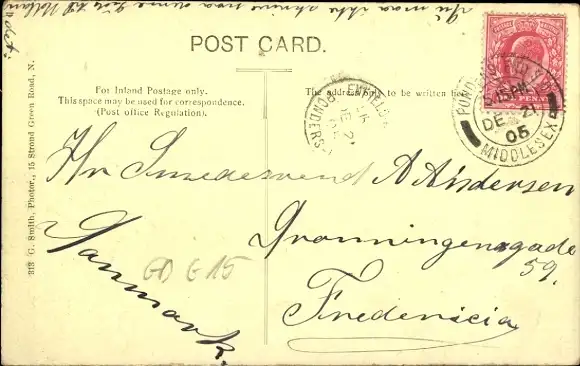 POST CARD.
For Inland Postage only.
This space may be used for correspondence.
(Post office Regulation).
The address only to be written here
ENFIELD
PONDERS
DE 21
PONDERS END
5.15 PM
DE 21
05
MIDDLESEX
Hr Smedesvend A Andersen
Dronningensgade
59.
Fredericia
Danmark.
GD G 15
313 G. Smith, Photor., 15 Stroud Green Road, N.